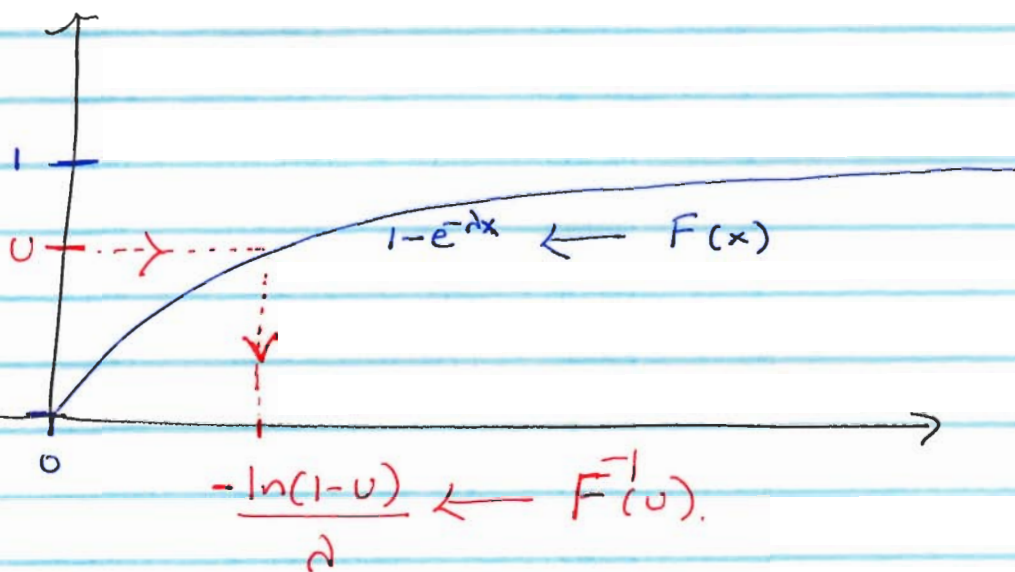 1
U
1-e^{-λx} ← F(x)
0
-ln(1-U)/λ ← F^{-1}(U).